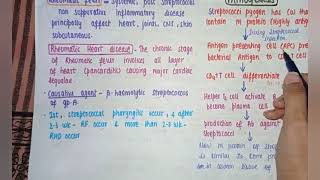 Rheumatic fever = Systemic, post streptococcal
non suppurative inflammatory disease
principally affect heart, joints, CNS, skin
subcutaneous.
Rheumatic Heart disease - The chronic stage
of Rheumatic fever involves all layer
of heart (pancarditis) causing major cardiac
sequelae
Causative agent - β-haemolytic Streptococcus
of gp A
1st, streptococcal pharyngitis occur, & after
2-3 wk - RF occur & more than 2-3 wk -
RHD occur
Pathogenesis
Streptococcus pyogen has
contain M protein (highly antig
During streptococcal
infection
Antigen presenting cell (APC) pre
bacterial Antigen to CD4 T cell
CD4 T cell differentiate
Helper T cell activate
become plasma cell
production of Ab against
streptococci
M protein of
is similar to some pro
in